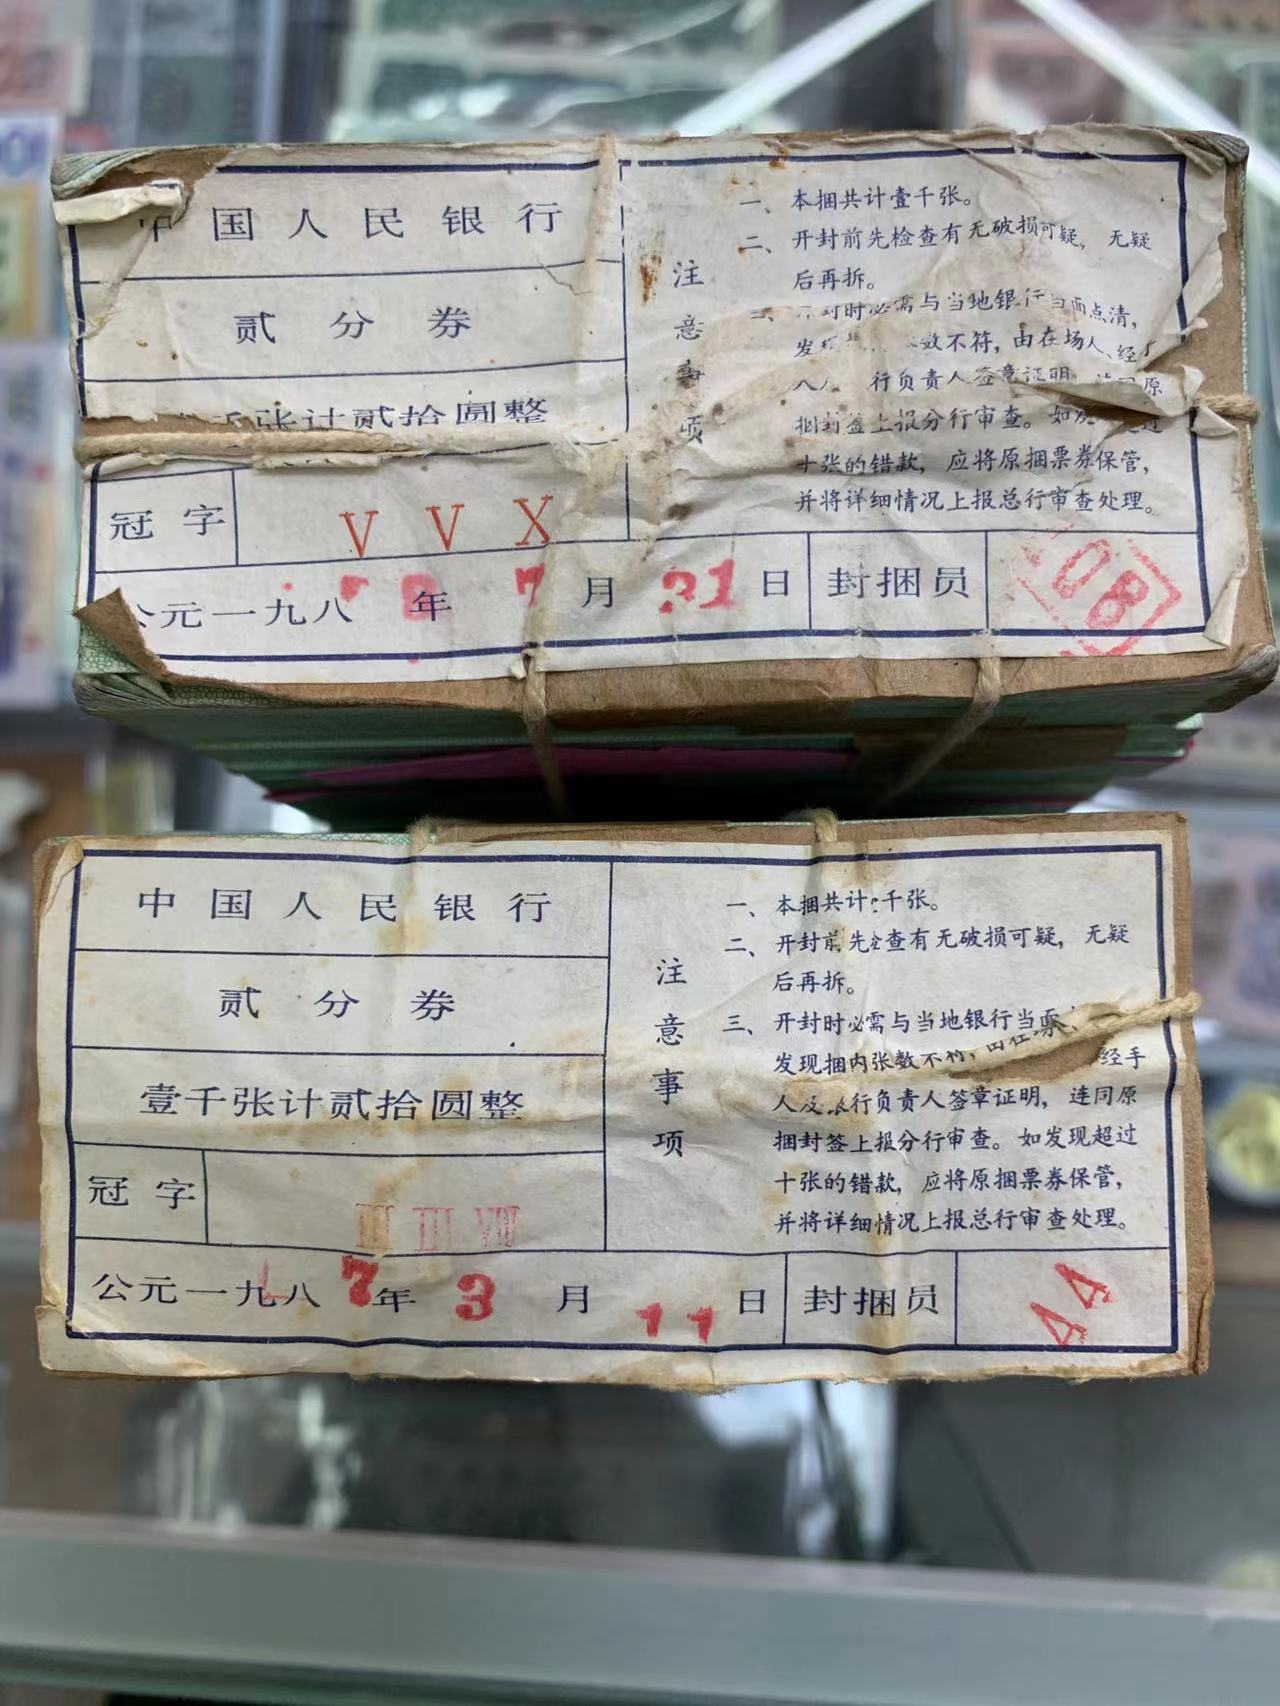 中国人民银行
贰分券
千张计贰拾圆整
冠字 V V X
公元一九八 8年 7月 31日 封捆员 108
注意事项
一、本捆共计壹千张。
二、开封前先检查有无破损可疑，无疑
后再拆。
开封时必需与当地银行当面点清，
发现 数不符，由在场人、经手
人 行负责人签章证明，连同原
捆封签上报分行审查。如发 超过
十张的错款，应将原捆票券保管，
并将详细情况上报总行审查处理。
中国人民银行
贰分券
壹千张计贰拾圆整
冠字 III III VIII
公元一九八7年 3月 11日 封捆员 44
注意事项
一、本捆共计 千张。
二、开封前先 查有无破损可疑，无疑
后再拆。
三、开封时必需与当地银行当面
发现捆内张数不符，由在场 经手
人及 行负责人签章证明，连同原
捆封签上报分行审查。如发现超过
十张的错款，应将原捆票券保管，
并将详细情况上报总行审查处理。